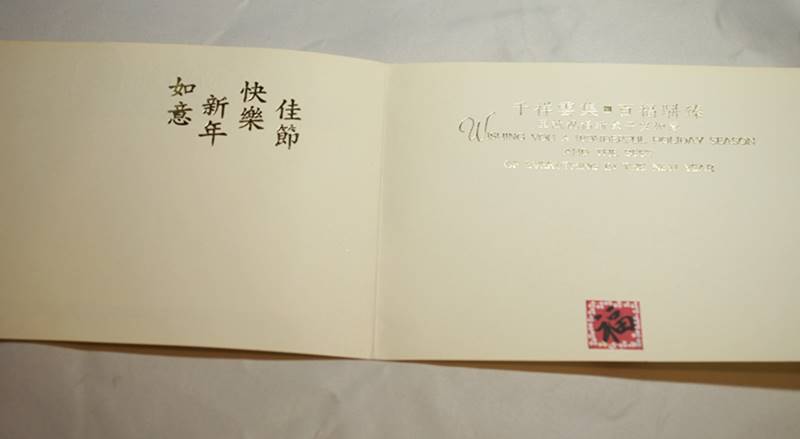 佳節
快樂
新年
如意
千祥雲集 百福駢臻
WISHING YOU A WONDERFUL HOLIDAY SEASON
AND THE BEST
OF EVERYTHING IN THE NEW YEAR
福